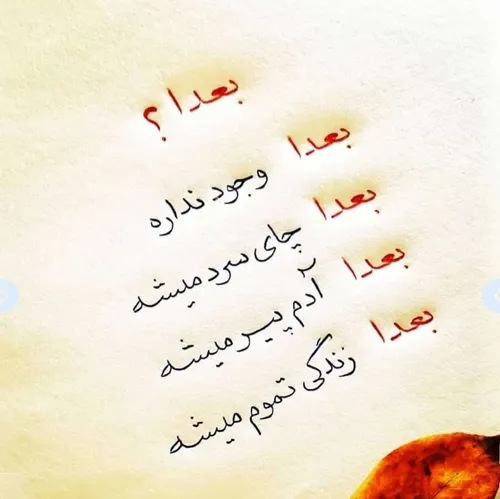 بعدا ؟
بعدا وجود نداره
بعدا چای سرد میشه
بعدا آدم پیر میشه
بعدا زندگی تموم میشه